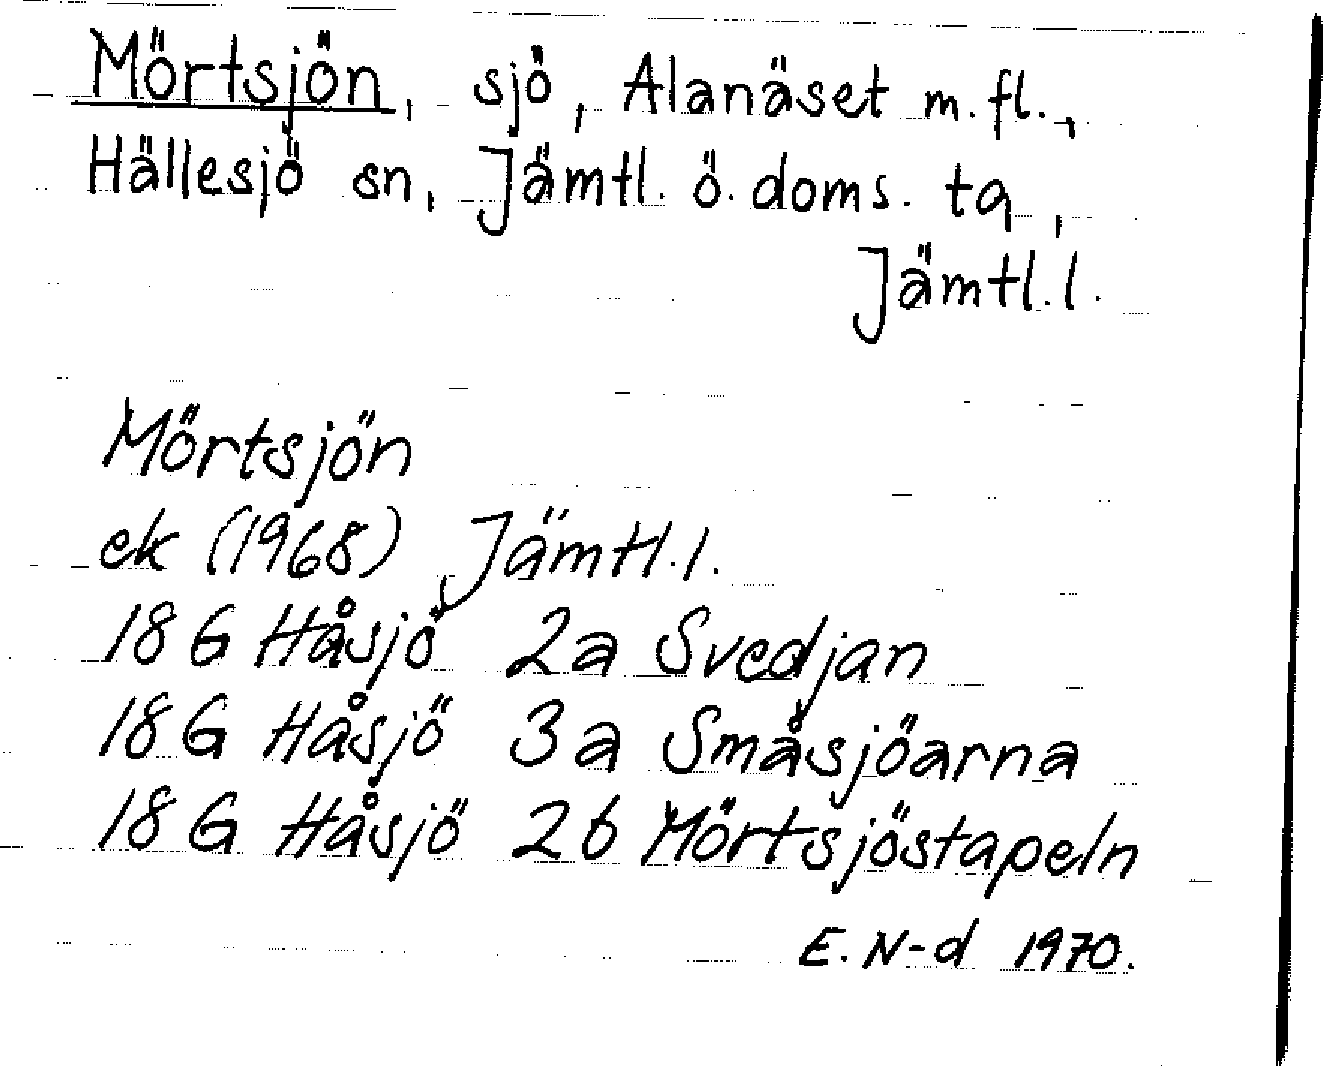 Mörtsjön, sjö, Alanäset m.fl.,
Hällesjö sn, Jämtl. ö. doms. tq,
Jämtl. l.
Mörtsjön
ek (1968) Jämtl. l.
18 G Håsjö 2a Svedjan
18 G Håsjö 3a Småsjöarna
18 G Håsjö 2b Mörtsjöstapeln
E. N-d 1970.